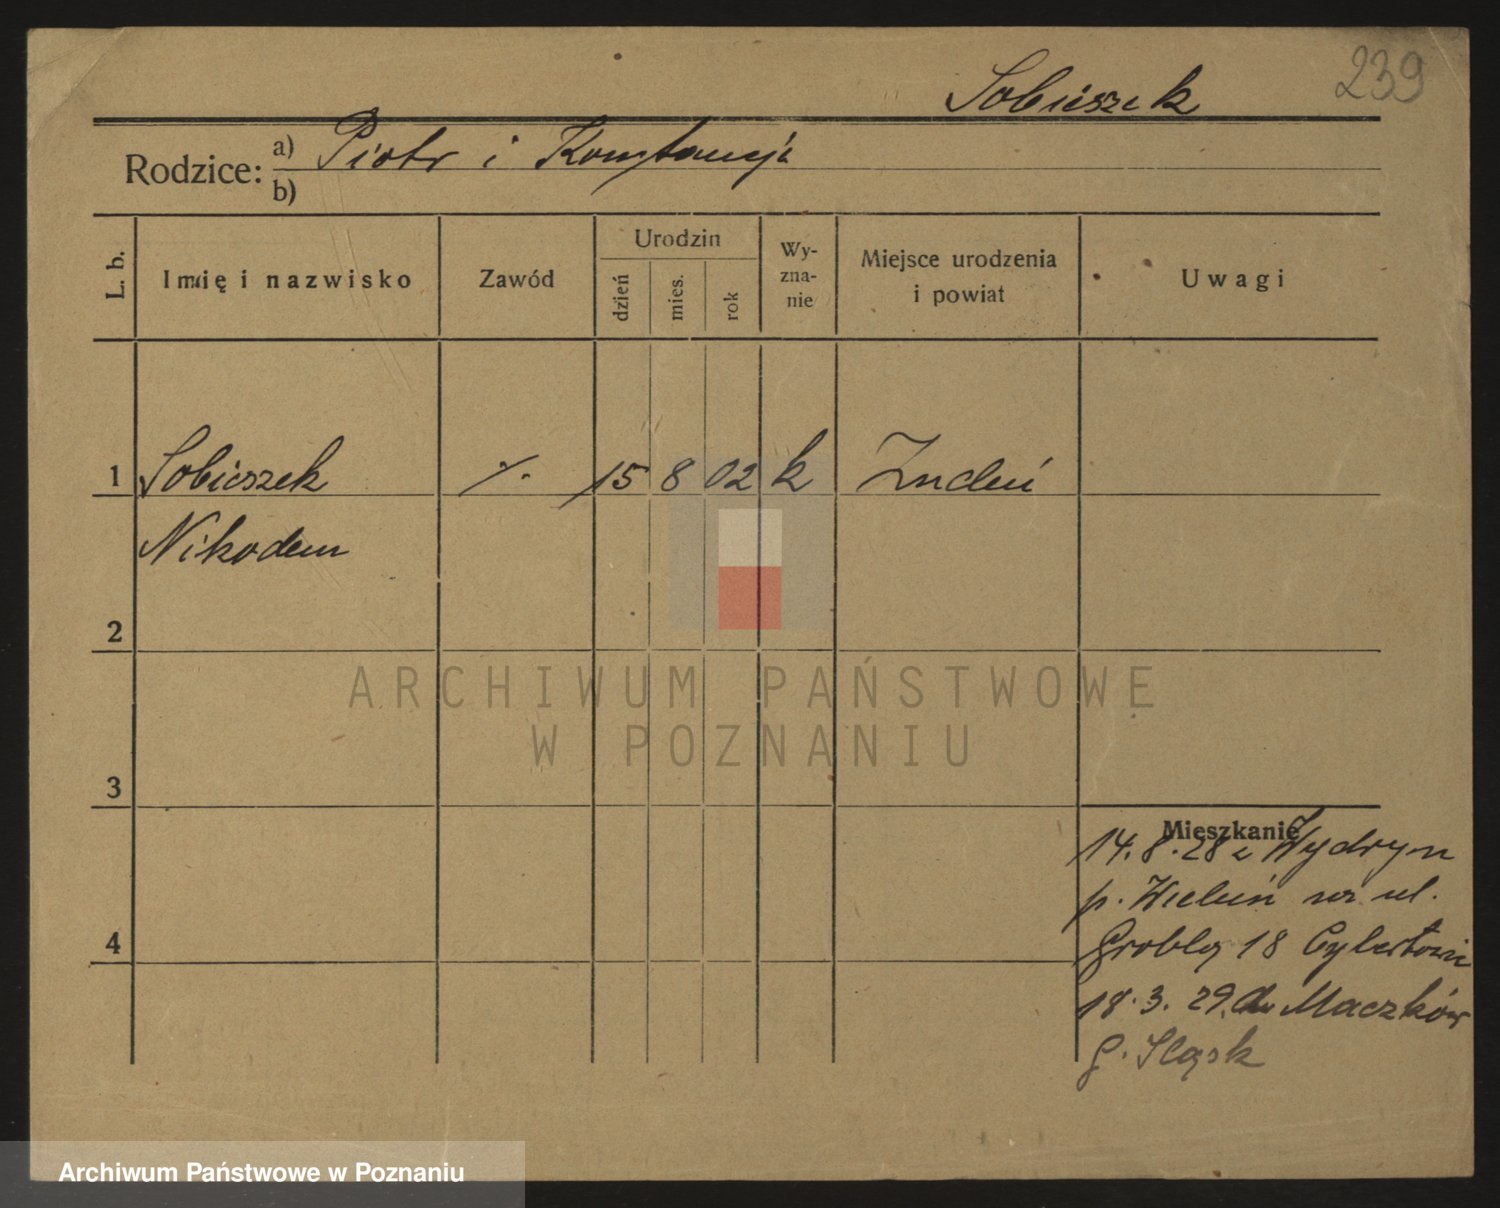 239
Sobieszek
Rodzice: a) Piotr i Konstancja
b)
L. b. Imię i nazwisko Zawód Urodzin dzień mies. rok Wy-zna-nie Miejsce urodzenia i powiat Uwagi
1 Sobieszek ·/. 15 8 02 k
Nikodem
2
3
4
Mieszkanie
14.8.28 z Wydrzyn
p. Wieluń na ul.
Grobla 18
18.3.29 do Maczków
G. Śląsk
ARCHIWUM PAŃSTWOWE
W POZNANIU
Archiwum Państwowe w Poznaniu